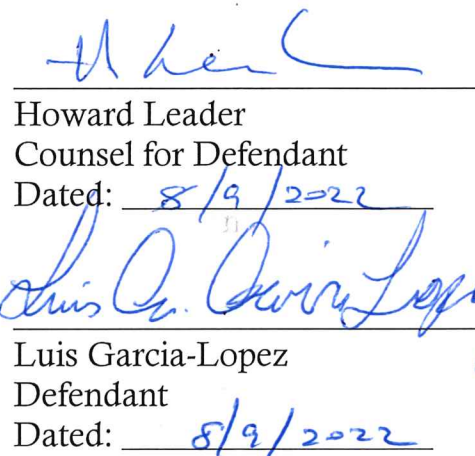 H Lea
Howard Leader
Counsel for Defendant
Dated: 8/9/2022
Luis Ga. Garcia Lopez
Luis Garcia-Lopez
Defendant
Dated: 8/9/2022